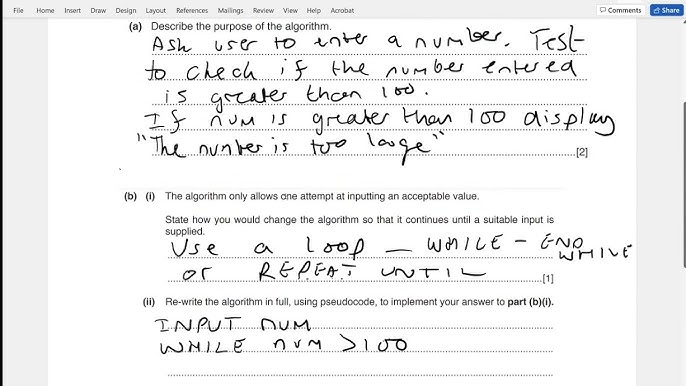 File Home Insert Draw Design Layout References Mailings Review View Help Acrobat Comments Share
(a) Describe the purpose of the algorithm.
Ask user to enter a number. Test
to check if the number entered
is greater than 100.
If num is greater than 100 display
"The number is too large"
[2]
(b) (i) The algorithm only allows one attempt at inputting an acceptable value.
State how you would change the algorithm so that it continues until a suitable input is
supplied.
Use a loop – WHILE – END
WHILE
or REPEAT UNTIL
[1]
(ii) Re-write the algorithm in full, using pseudocode, to implement your answer to part (b)(i).
INPUT num
WHILE num >100